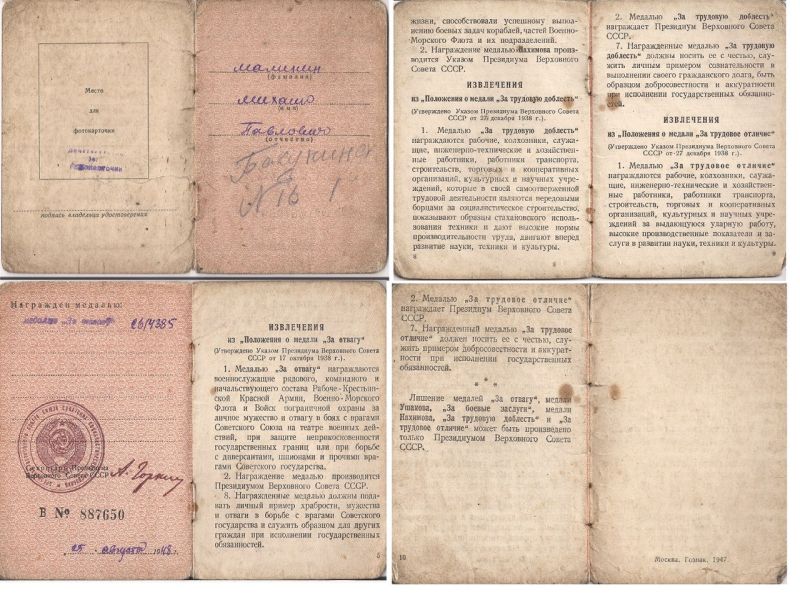 Место
для
фотокарточки
подпись владельца удостоверения
Малинин
(фамилия)
Михаил
(имя)
Павлович
(отчество)
Бакунина
№ 1б 1
жизни, способствовали успешному выпол-
нению боевых задач кораблей, частей Военно-
Морского Флота и их подразделений.
2. Награждение медалью Нахимова произ-
водится Указом Президиума Верховного
Совета СССР.
ИЗВЛЕЧЕНИЯ
из „Положения о медали „За трудовую доблесть“
(Утверждено Указом Президиума Верховного Совета
СССР от 27 декабря 1938 г.).
1. Медалью „За трудовую доблесть“
награждаются рабочие, колхозники, служа-
щие, инженерно-технические и хозяйствен-
ные работники, работники транспорта,
строительств, торговых и кооперативных
организаций, культурных и научных учре-
ждений, которые в своей самоотверженной
трудовой деятельности являются передовыми
борцами за социалистическое строительство,
показывают образцы стахановского исполь-
зования техники и дают высокие нормы
производительности труда, двигают вперед
развитие науки, техники и культуры.
8
2. Медалью „За трудовую доблесть“
награждает Президиум Верховного Совета
СССР.
7. Награжденные медалью „За трудовую
доблесть“ должны носить ее с честью, слу-
жить личным примером сознательности в
выполнении своего гражданского долга, быть
образцом добросовестности и аккуратности
при исполнении государственных обязанно-
стей.
ИЗВЛЕЧЕНИЯ
из „Положения о медали „За трудовое отличие“
(Утверждено Указом Президиума Верховного Совета
СССР от 27 декабря 1938 г.).
1. Медалью „За трудовое отличие“
награждаются рабочие, колхозники, служа-
щие, инженерно-технические и хозяйствен-
ные работники, работники транспорта,
строительств, торговых и кооперативных
организаций, культурных и научных учре-
ждений за выдающуюся ударную работу,
высокие производственные показатели и за-
слуги в развитии науки, техники и культуры.
9
Награжден медалью:
медалью „За отвагу“ 2614385
Секретарь Президиума
Верховного Совета СССР А. Горкин
В № 887650
25 августа 1948 г.
ИЗВЛЕЧЕНИЯ
из „Положения о медали „За отвагу“
(Утверждено Указом Президиума Верховного Совета
СССР от 17 октября 1938 г.).
1. Медалью „За отвагу“ награждаются
военнослужащие рядового, командного и
начальствующего состава Рабоче-Крестьян-
ской Красной Армии, Военно-Морского
Флота и Войск пограничной охраны за
личное мужество и отвагу в боях с врагами
Советского Союза на театре военных дей-
ствий, при защите неприкосновенности
государственных границ или при борьбе
с диверсантами, шпионами и прочими вра-
гами Советского государства.
2. Награждение медалью производится
Президиумом Верховного Совета СССР.
8. Награжденные медалью должны пода-
вать личный пример храбрости, мужества
и отваги в борьбе с врагами Советского
государства и служить образцом для других
граждан при исполнении государственных
обязанностей.
5
2. Медалью „За трудовое отличие“
награждает Президиум Верховного Совета
СССР.
7. Награжденный медалью „За трудовое
отличие“ должен носить ее с честью, слу-
жить примером добросовестности и аккурат-
ности при исполнении государственных
обязанностей.
* * *
Лишение медалей „За отвагу“, медали
Ушакова, „За боевые заслуги“, медали
Нахимова, „За трудовую доблесть“ и „За
трудовое отличие“ может быть произведено
только Президиумом Верховного Совета
СССР.
10
Москва. Гознак. 1947.